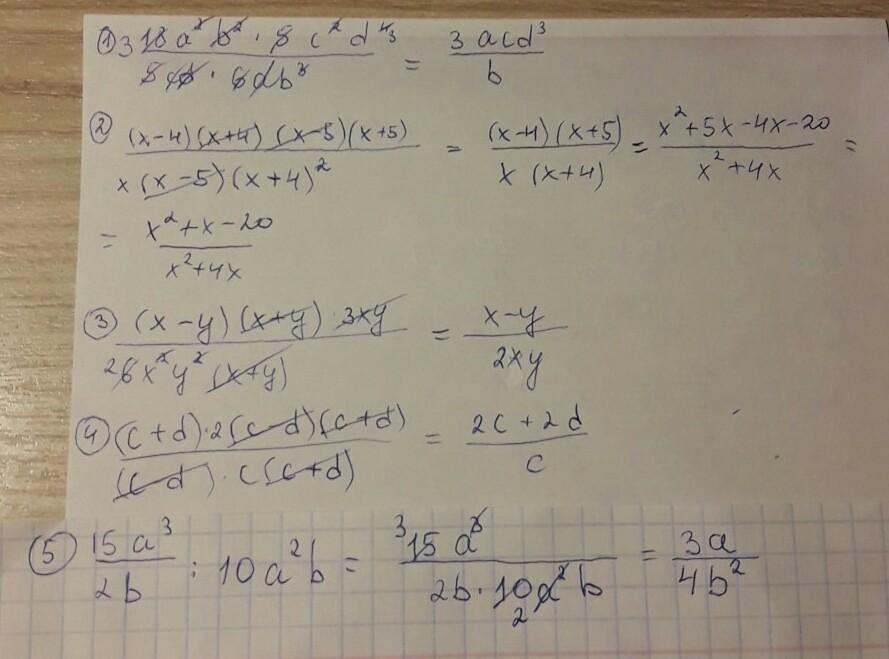 ① 3 18 a² b² · 8 c² d⁴ ³ / 8 · 6 d b³ = 3 a c d³ / b
② (x-4)(x+4)(x-5)(x+5) / x(x-5)(x+4)² = (x-4)(x+5) / x(x+4) = x²+5x-4x-20 / x²+4x =
= x²+x-20 / x²+4x
③ (x-y)(x+y) 3xy / 2 6x²y²(x+y) = x-y / 2xy
④ (c+d)·2(c-d)(c+d) / (c-d)·c(c+d) = 2c+2d / c
⑤ 15a³ / 2b : 10a²b = ³15 a³ / 2b·10a²b 2 = 3a / 4b²